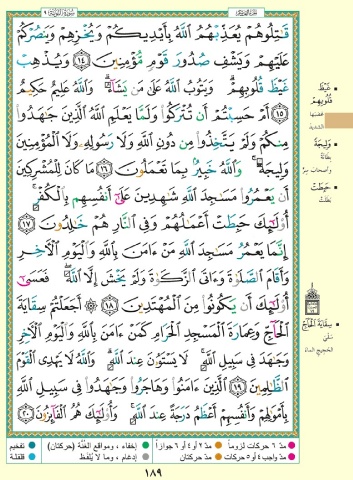 سورة التوبة ٩
الجزء العاشر
قَـٰتِلُوهُمْ يُعَذِّبْهُمُ ٱللَّهُ بِأَيْدِيكُمْ وَيُخْزِهِمْ وَيَنصُرْكُمْ
عَلَيْهِمْ وَيَشْفِ صُدُورَ قَوْمٍ مُّؤْمِنِينَ ١٤ وَيُذْهِبْ
غَيْظَ قُلُوبِهِمْ ۗ وَيَتُوبُ ٱللَّهُ عَلَىٰ مَن يَشَآءُ ۗ وَٱللَّهُ عَلِيمٌ حَكِيمٌ
١٥ أَمْ حَسِبْتُمْ أَن تُتْرَكُوا۟ وَلَمَّا يَعْلَمِ ٱللَّهُ ٱلَّذِينَ جَـٰهَدُوا۟
مِنكُمْ وَلَمْ يَتَّخِذُوا۟ مِن دُونِ ٱللَّهِ وَلَا رَسُولِهِۦ وَلَا ٱلْمُؤْمِنِينَ
وَلِيجَةً ۚ وَٱللَّهُ خَبِيرٌۢ بِمَا تَعْمَلُونَ ١٦ مَا كَانَ لِلْمُشْرِكِينَ
أَن يَعْمُرُوا۟ مَسَـٰجِدَ ٱللَّهِ شَـٰهِدِينَ عَلَىٰٓ أَنفُسِهِم بِٱلْكُفْرِ ۚ
أُو۟لَـٰٓئِكَ حَبِطَتْ أَعْمَـٰلُهُمْ وَفِى ٱلنَّارِ هُمْ خَـٰلِدُونَ ١٧
إِنَّمَا يَعْمُرُ مَسَـٰجِدَ ٱللَّهِ مَنْ ءَامَنَ بِٱللَّهِ وَٱلْيَوْمِ ٱلْـَٔاخِرِ
وَأَقَامَ ٱلصَّلَوٰةَ وَءَاتَى ٱلزَّكَوٰةَ وَلَمْ يَخْشَ إِلَّا ٱللَّهَ ۖ فَعَسَىٰٓ
أُو۟لَـٰٓئِكَ أَن يَكُونُوا۟ مِنَ ٱلْمُهْتَدِينَ ١٨ ۞ أَجَعَلْتُمْ سِقَايَةَ
ٱلْحَآجِّ وَعِمَارَةَ ٱلْمَسْجِدِ ٱلْحَرَامِ كَمَنْ ءَامَنَ بِٱللَّهِ وَٱلْيَوْمِ ٱلْـَٔاخِرِ
وَجَـٰهَدَ فِى سَبِيلِ ٱللَّهِ ۚ لَا يَسْتَوُۥنَ عِندَ ٱللَّهِ ۗ وَٱللَّهُ لَا يَهْدِى ٱلْقَوْمَ
ٱلظَّـٰلِمِينَ ١٩ ٱلَّذِينَ ءَامَنُوا۟ وَهَاجَرُوا۟ وَجَـٰهَدُوا۟ فِى سَبِيلِ ٱللَّهِ
بِأَمْوَٰلِهِمْ وَأَنفُسِهِمْ أَعْظَمُ دَرَجَةً عِندَ ٱللَّهِ ۚ وَأُو۟لَـٰٓئِكَ هُمُ ٱلْفَآئِزُونَ ٢٠
غَيْظَ
قُلُوبِهِمْ
غضبها
الشديد
وَلِيجَةً
بطانة
وأصحاب سِرٍّ
حَبِطَتْ
بَطَلَتْ
سِقَايَةَ الْحَاجِّ
سَقْيَ
الحجيج الماءَ
مدّ ٦ حركات لزوماً
مدّ ٢ أو ٤ أو ٦ جوازاً
إخفاء، ومواقع الغُنَّة (حركتان)
تفخيم
مدّ واجب ٤ أو ٥ حركات
مدّ حركتان
إدغام، وما لا يُلفَظ
قلقلة
١٨٩